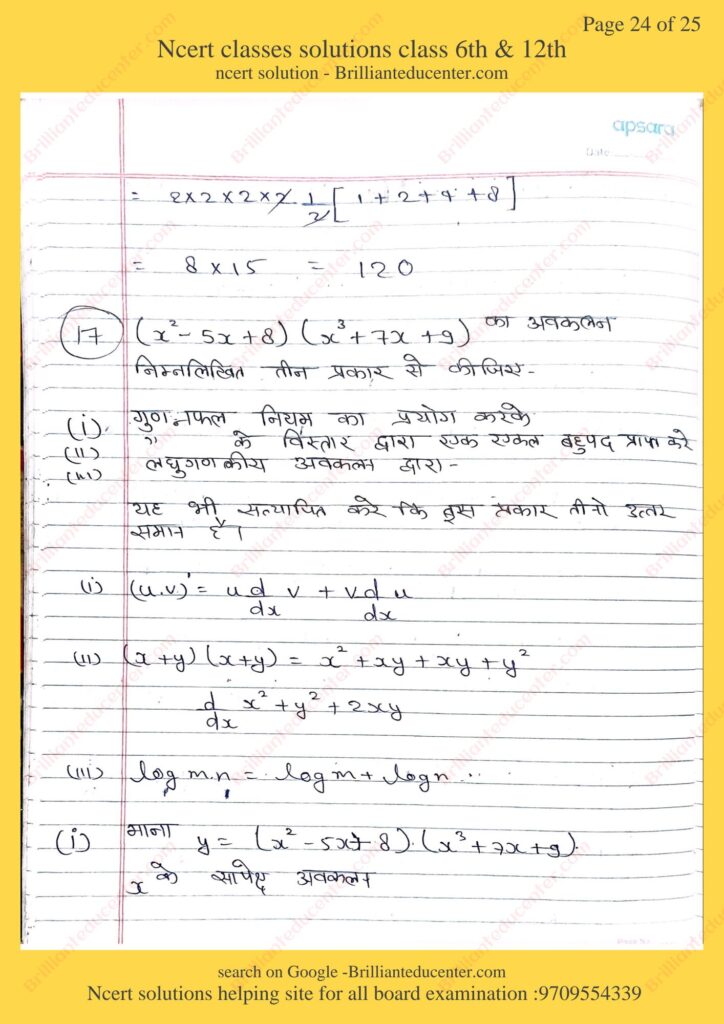 Page 24 of 25
Ncert classes solutions class 6th & 12th
ncert solution - Brillianteducenter.com
apsara
Date
= 2×2×2×2 1/2 [1+2+4+8]
= 8×15 = 120
17 (x²-5x+8) (x³+7x+9) का अवकलन
निम्नलिखित तीन प्रकार से कीजिए-
(i) गुणनफल नियम का प्रयोग करके
(ii) " के विस्तार द्वारा एक एकल बहुपद प्राप्त करे
(iii) लघुगणकीय अवकलन द्वारा-
यह भी सत्यापित करे कि इस प्रकार तीनो उत्तर
समान है।
(i) (u.v)' = u d/dx v + v d/dx u
(ii) (x+y) (x+y) = x² + xy + xy + y²
d/dx x² + y² + 2xy
(iii) log m.n = log m + log n ..
(i) माना y = (x²-5x+8).(x³+7x+9).
x के सापेक्ष अवकलन
search on Google -Brillianteducenter.com
Ncert solutions helping site for all board examination :9709554339